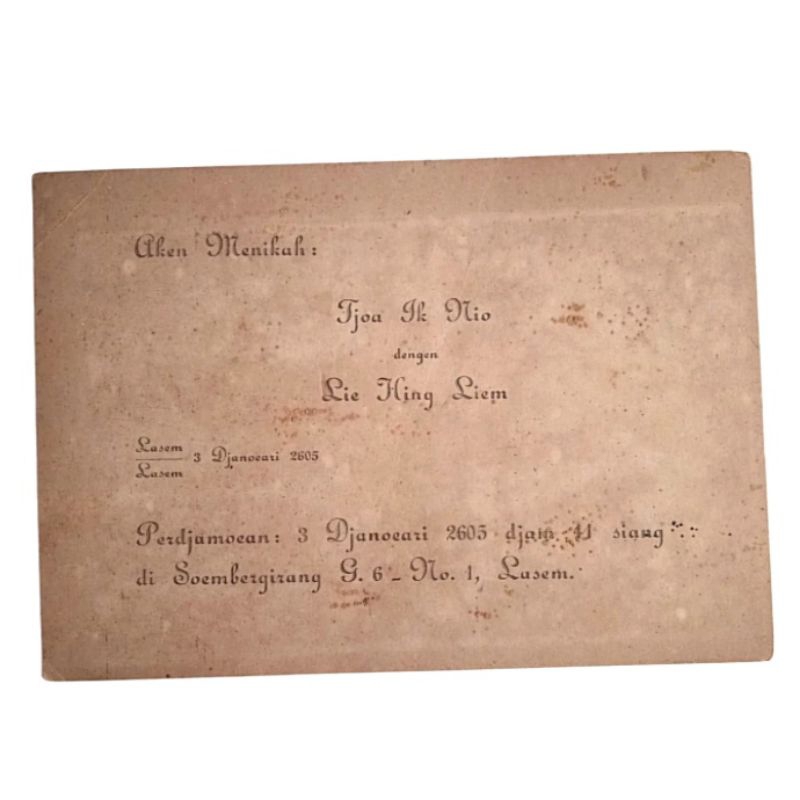 Aken Menikah:
Tjoa Ik Nio
dengen
Lie Hing Liem
Lasem
3 Djanoeari 2605
Lasem
Perdjamoean: 3 Djanoeari 2605 djam 11 siang
di Soembergirang G. 6 - No. 1, Lasem.